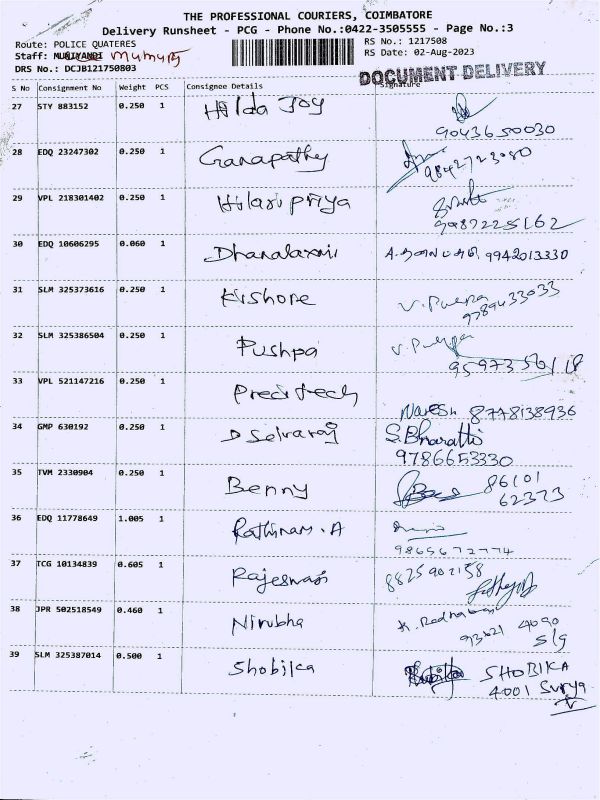 THE PROFESSIONAL COURIERS, COIMBATORE
Delivery Runsheet - PCG - Phone No.:0422-3505555 - Page No.:3
Route: POLICE QUATERES RS No.: 1217508
Staff: RS Date: 02-Aug-2023
DRS No.: DCJB121750803 DOCUMENT DELIVERY
S No Consignment No Weight PCS Consignee Details Signature
27 STY 883152 0.250 1 Hilda Joy
9043650030
28 EDQ 23247302 0.250 1 Ganapathy
9842723080
29 VPL 218301402 0.250 1 Hilaripriya
9987225162
30 EDQ 10606295 0.060 1 Dhanalaxmi 9942013330
31 SLM 325373616 0.250 1 Kishore V. Pushpa
9789433033
32 SLM 325386504 0.250 1 Pushpa V. Pushpa
33 VPL 521147216 0.250 1
Naresh 8778138936
34 GMP 630192 0.250 1 D Selvaraj S.Bharathi
9786653330
35 TVM 2330904 0.250 1 Benny 86101
62373
36 EDQ 11778649 1.005 1 Rathinam.A
9865672774
37 TCG 10134839 0.605 1 Rajeswari 8825902158
38 JPR 502518549 0.460 1 Nirubha
93621 4090
39 SLM 325387014 0.500 1 Shobika SHOBIKA
4001 Surya